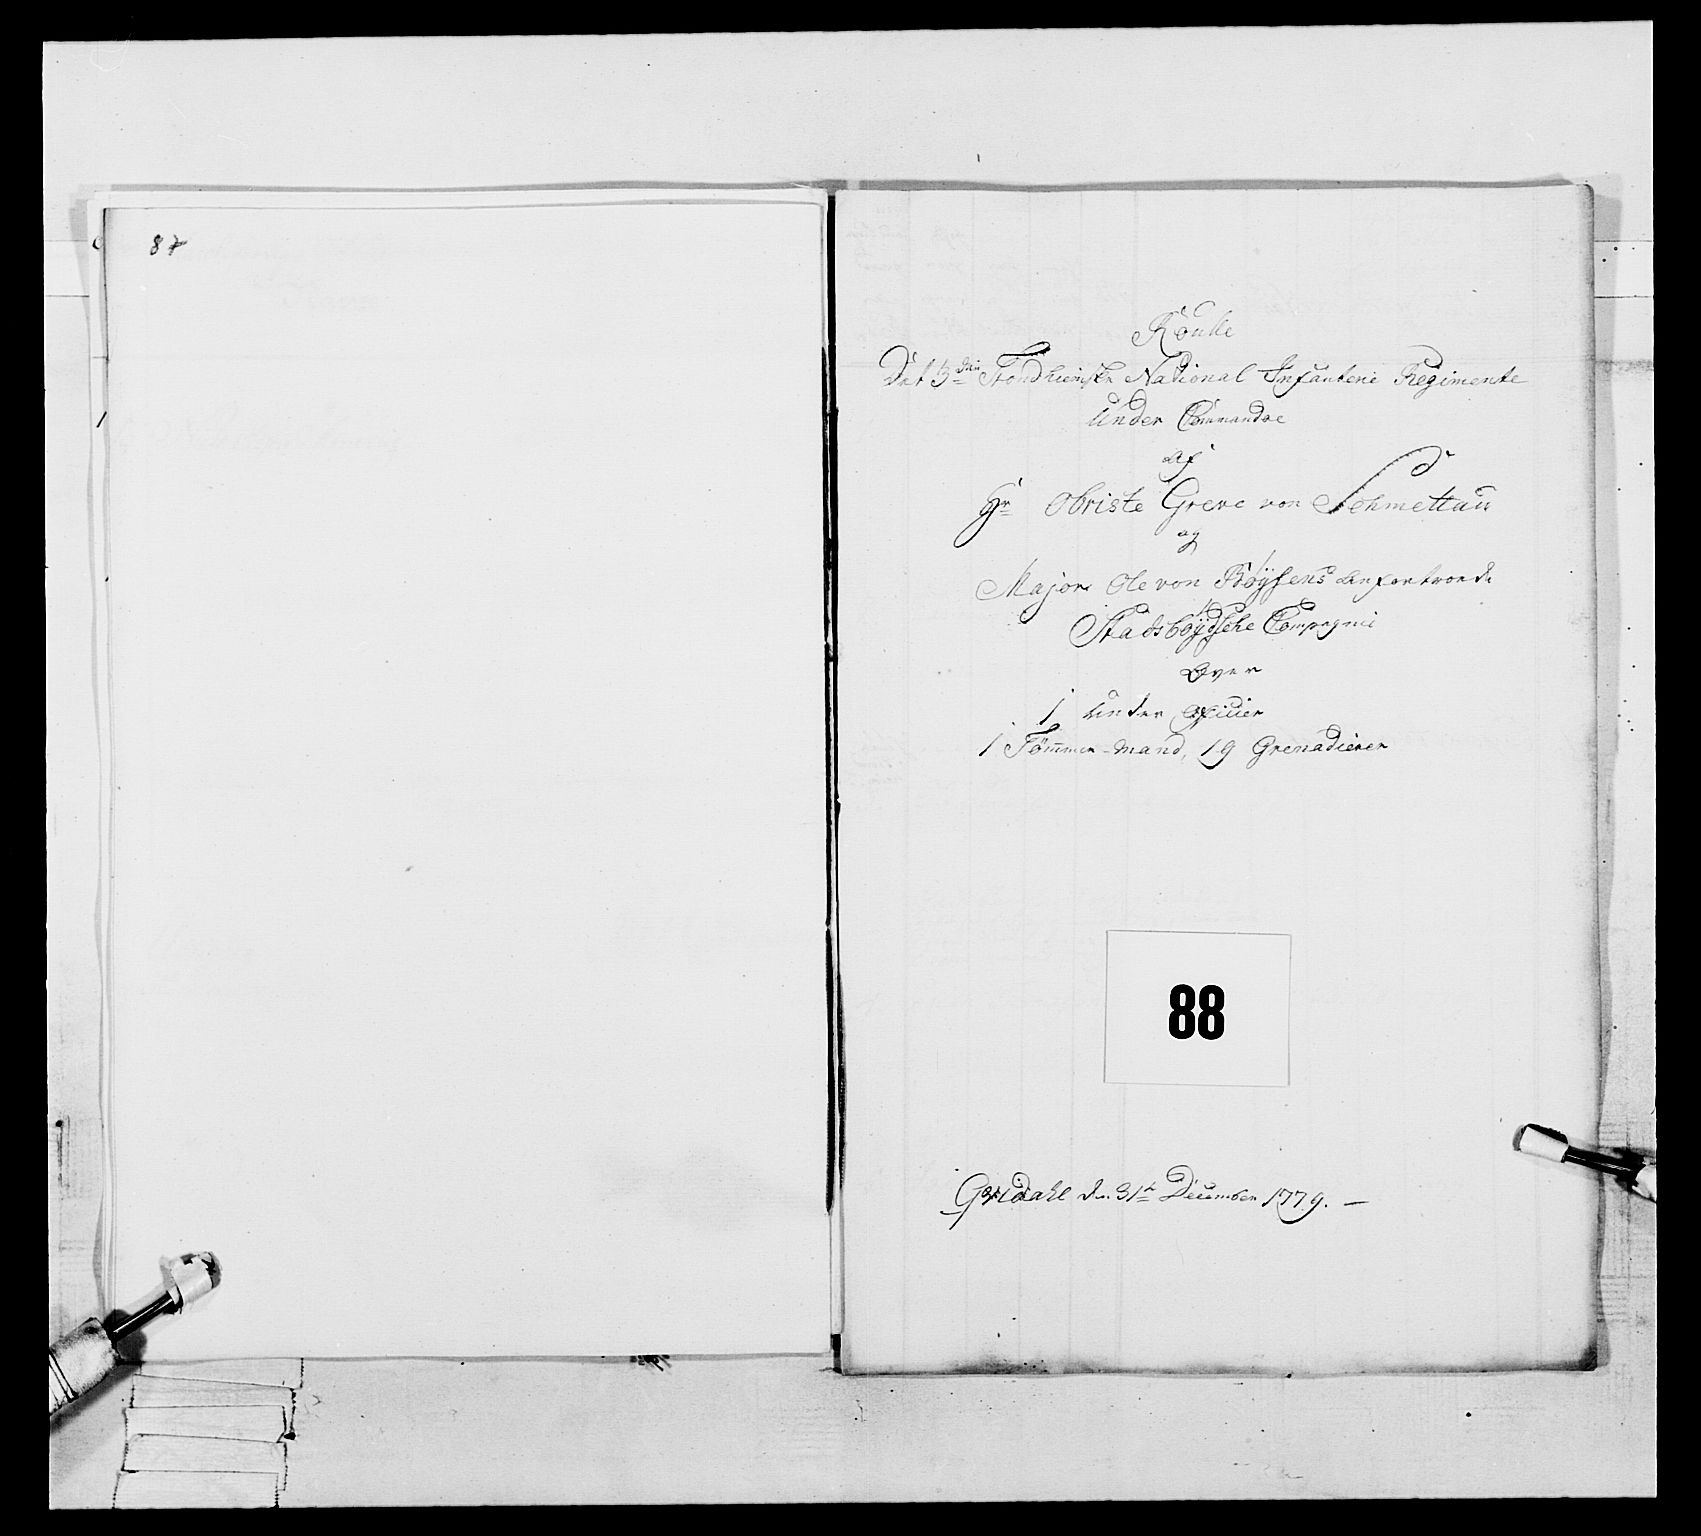 87
Roulle
Det 3die Trondhiemske National Infanterie Regimente
Under Commandoe
af
Hr Obriste Greve von Schmettau
og
Major Ole von Böÿsens anfortroede
Stadsboÿdsche Compagnie
Over
1 Under Officier
1 Tömmer-Mand, 19 Grenadierer
88
den 31te December 1779. —